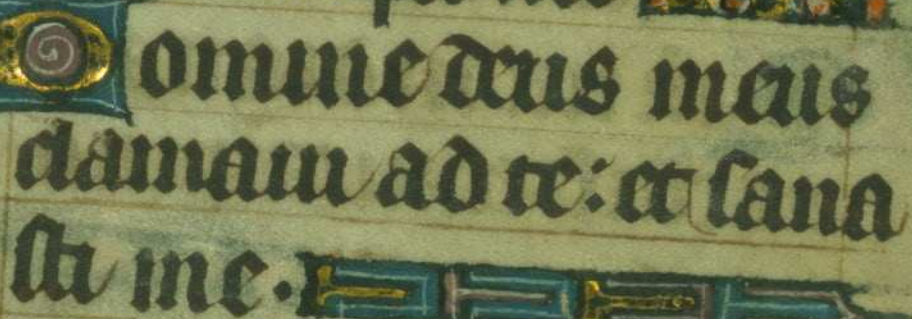 Domine deus meus
clamaui ad te: et sana
sti me.